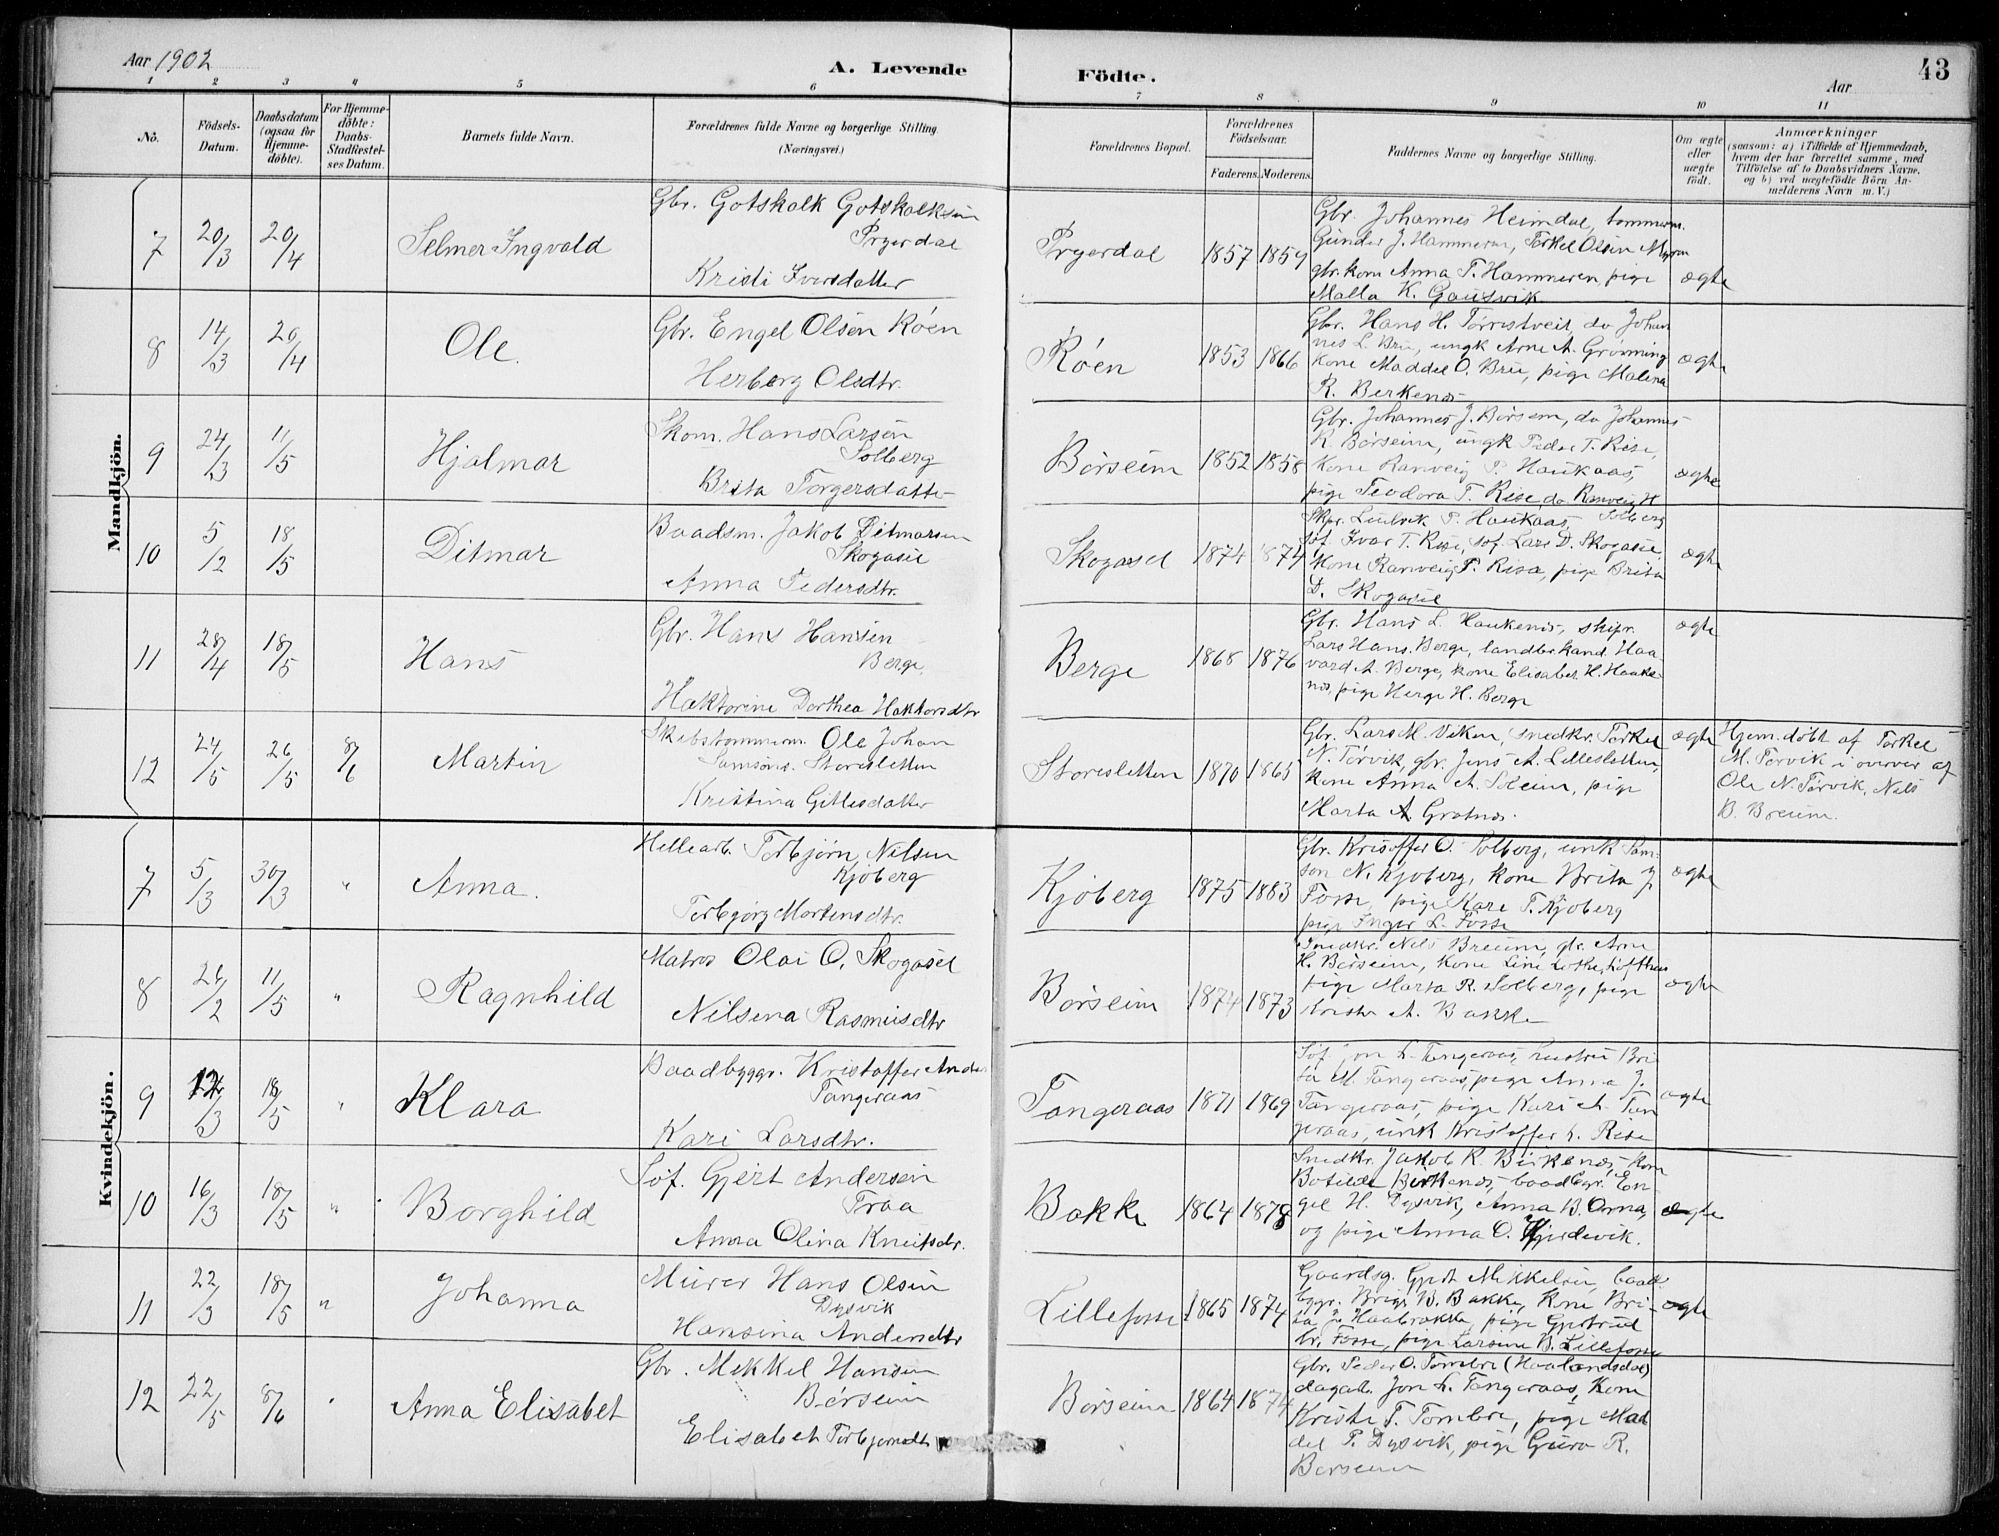 Aar 1902
A. Levende Födte.
Aar
43
1 2 3 4 5 6 7 8 9 10 11
No.
Födsels-Datum.
Daabsdatum (ogsaa for Hjemme-döbte).
For Hjemme-döbte: Daabs-Stadfæstelses Datum.
Barnets fulde Navn.
Forældrenes fulde Navne og borgerlige Stilling. (Næringsvei.)
Forældrenes Bopæl.
Forældrenes Födselsaar.
Faderens. Moderens.
Faddernes Navne og borgerlige Stilling.
Om ægte eller uægte födt.
Anmærkninger
(saasom: a) i Tilfælde af Hjemmedaab, hvem der har forrettet samme, med Tilföielse af to Daabsvidners Navne, og b) ved uægtefödte Börn Anmelderens Navn m.V.)
Mandkjön.
7 20/3 20/4 Selmer Ingvald
Gbr. Gotskalk Gotskalksen
Pryerdal
Kristi Iversdatter
Pryerdal 1857 1859
Gbr. Johannes Heimdal, tommerm.
Gunder J. Hammeren, Torkel Olsen Myren
gbr. kone Anna T. Hammeren, pige
Malla K. Gausvik
ægte
8 14/3 20/4 Ole.
Gbr. Engel Olsen Røen
Herborg Olsdtr.
Røen 1853 1866
Gbr. Hans H. Tørristveit, do Johan
nes L. Brie, ungk Arne A. Grønning
kone Maddel O. Brie, pige Malena
R. Berkenes
ægte
9 24/3 11/5 Hjalmar
Skom. Hans Larsen
Solberg
Brita Torgersdatter
Børseim 1852 1858
Gbr. Johannes J. Børseim, do Johannes
K. Børseim, ungk Peder T. Rise,
kone Ranveig P. Haukaas,
pige Teodora T. Rise, do Ranveig H
Solberg
ægte
10 5/2 18/5 Ditmar
Baadsm. Jakob Ditmarsen
Skogasel
Anna Pedersdtr.
Skogasel 1874 1874
Skpr. Ludvik P. Haukaas,
Søf. Ivar T. Rise, Søf. Lars D. Skogasel,
kone Ranveig T. Risa, pige Brita
D. Skogasel
ægte
11 28/4 18/5 Hans
Gbr. Hans Hansen
Berge
Haktorine Dorthea Haktorsdtr
Berge 1868 1876
Gbr. Hans L. Haukenes, skipr.
Lars Hans. Berge, landbr. kand. Haa-
vard A. Berge, kone Elisabet H. Hauke
nes, pige Herge H. Berge
ægte
12 24/5 26/5 8/6 Martin
Skibstommerm. Ole Johan
Samsons. Storesletten
Kristina Gitlesdatter
Storesletten 1870 1865
Gbr. Lars M. Viken, snedkr. Torkel
N. Tørvik, gbr. Jens A. Lillesletten,
kone Anna A. Soleim, pige
Marta A. Gratnes.
ægte
Hjem. døbt af Torkel
M. Tørvik i overvær af
Ole N. Tørvik, Nils
B. Breiem.
Kvindekjön.
7 5/3 30/3 " Anna.
Hellearb. Torbjørn Nilsen
Kjøberg
Torbjørg Mortensdtr.
Kjøberg 1875 1883
Gbr. Kristoffer O. Solberg, unk Sam-
son N. Kjøberg, kone Brita J.
Fosse, pige Kari T. Kjøberg
pige Inger L. Fosse
ægte
8 26/2 11/5 " Ragnhild
Matros Olai O. Skogasel
Nilsena Rasmusdtr
Børseim 1874 1873
Snedkr. Nils Breiem, gbr. Arne
H. Børseim, kone Line Lothe, Lofthus
pige Marta R. Solberg, pige
Kristi A. Bakke
ægte
9 12/3 18/5 " Klara
Baadbyggr. Kristoffer Anders
Tangeraas
Kari Larsdtr.
Tangeraas 1871 1869
Søf. Jon L. Tangeraas, hustru Bri
ta M. Tangeraas, pige Anna J.
Tangeraas, pige Kari A. Tan
geraas, unk Kristoffer L. Rise
ægte
10 16/3 18/5 " Borghild
Søf. Gjert Andersen
Traa
Anna Olina Knutsdr.
Bakke 1864 1878
Snedkr. Jakob R. Birkenes, kone
Botilde Birkenes, baadbygr. En
gel H. Dysvik, Anna B. Ouna,
og pige Anna O. Fjordevik.
ægte
11 22/3 18/5 " Johanna
Murer Hans Olsen
Dysvik
Hansina Andersdtr
Lillefosse 1865 1874
Gaardsg. Gjert Mikkelsen, baad
bygr. Brigt B. Bakke, kone Bri-
ta J. Haabrække, pige Gjertrud
Kr. Fosse, pige Larsine B. Lillefosse
ægte
12 22/5 8/6 " Anna Elisabet
Gbr. Mikkel Hansen
Børseim
Elisabet Torbjørndtr
Børseim 1864 1874
Gbr. Peder O. Tombre (Haalandsdal)
dagab. Jon L. Tangeraas, Kone
Kristi T. Tombre, pige Mad
del P. Dysvik, pige Guro R.
Børseim